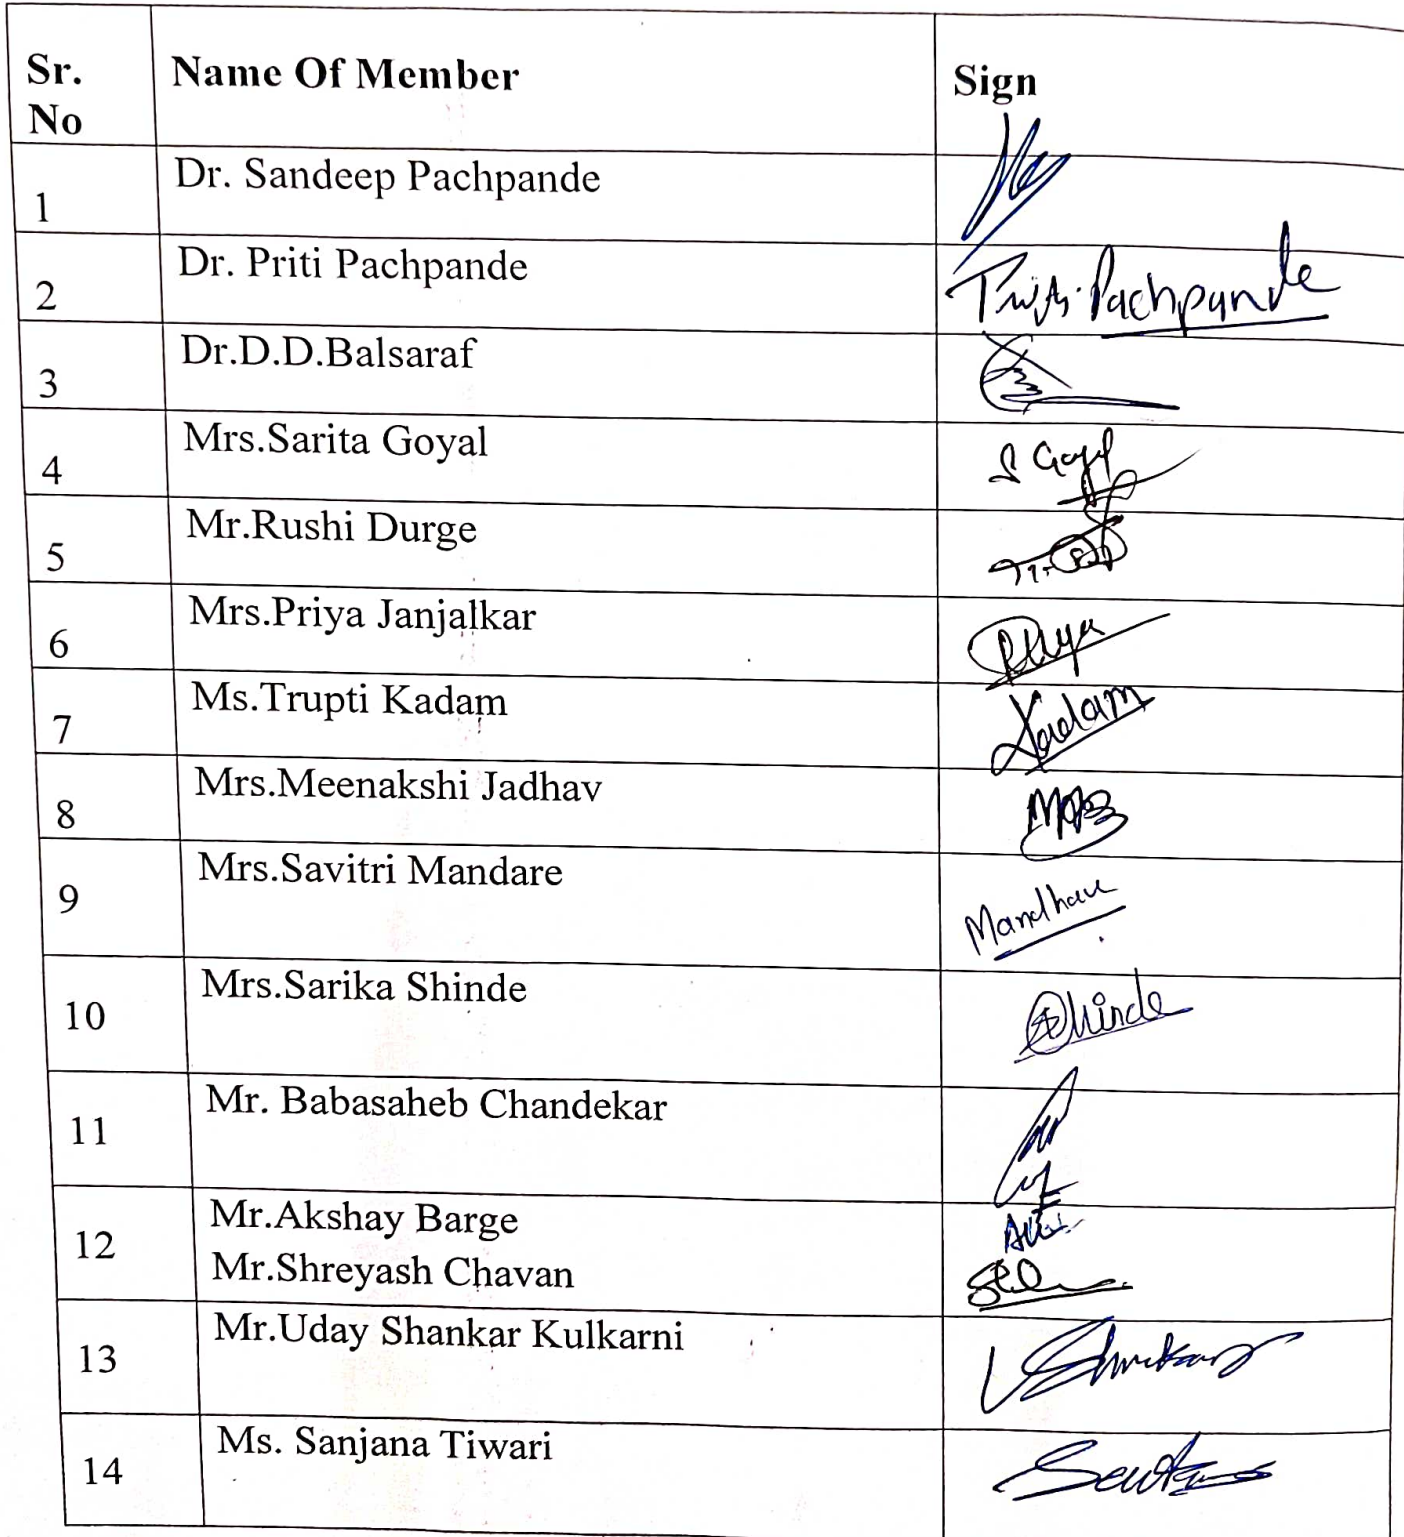 Sr. No Name Of Member Sign
1 Dr. Sandeep Pachpande
2 Dr. Priti Pachpande Pachpande
3 Dr.D.D.Balsaraf
4 Mrs.Sarita Goyal S Goyal
5 Mr.Rushi Durge
6 Mrs.Priya Janjalkar Priya
7 Ms.Trupti Kadam Kadam
8 Mrs.Meenakshi Jadhav
9 Mrs.Savitri Mandare
10 Mrs.Sarika Shinde Shinde
11 Mr. Babasaheb Chandekar
12 Mr.Akshay Barge
Mr.Shreyash Chavan
13 Mr.Uday Shankar Kulkarni
14 Ms. Sanjana Tiwari